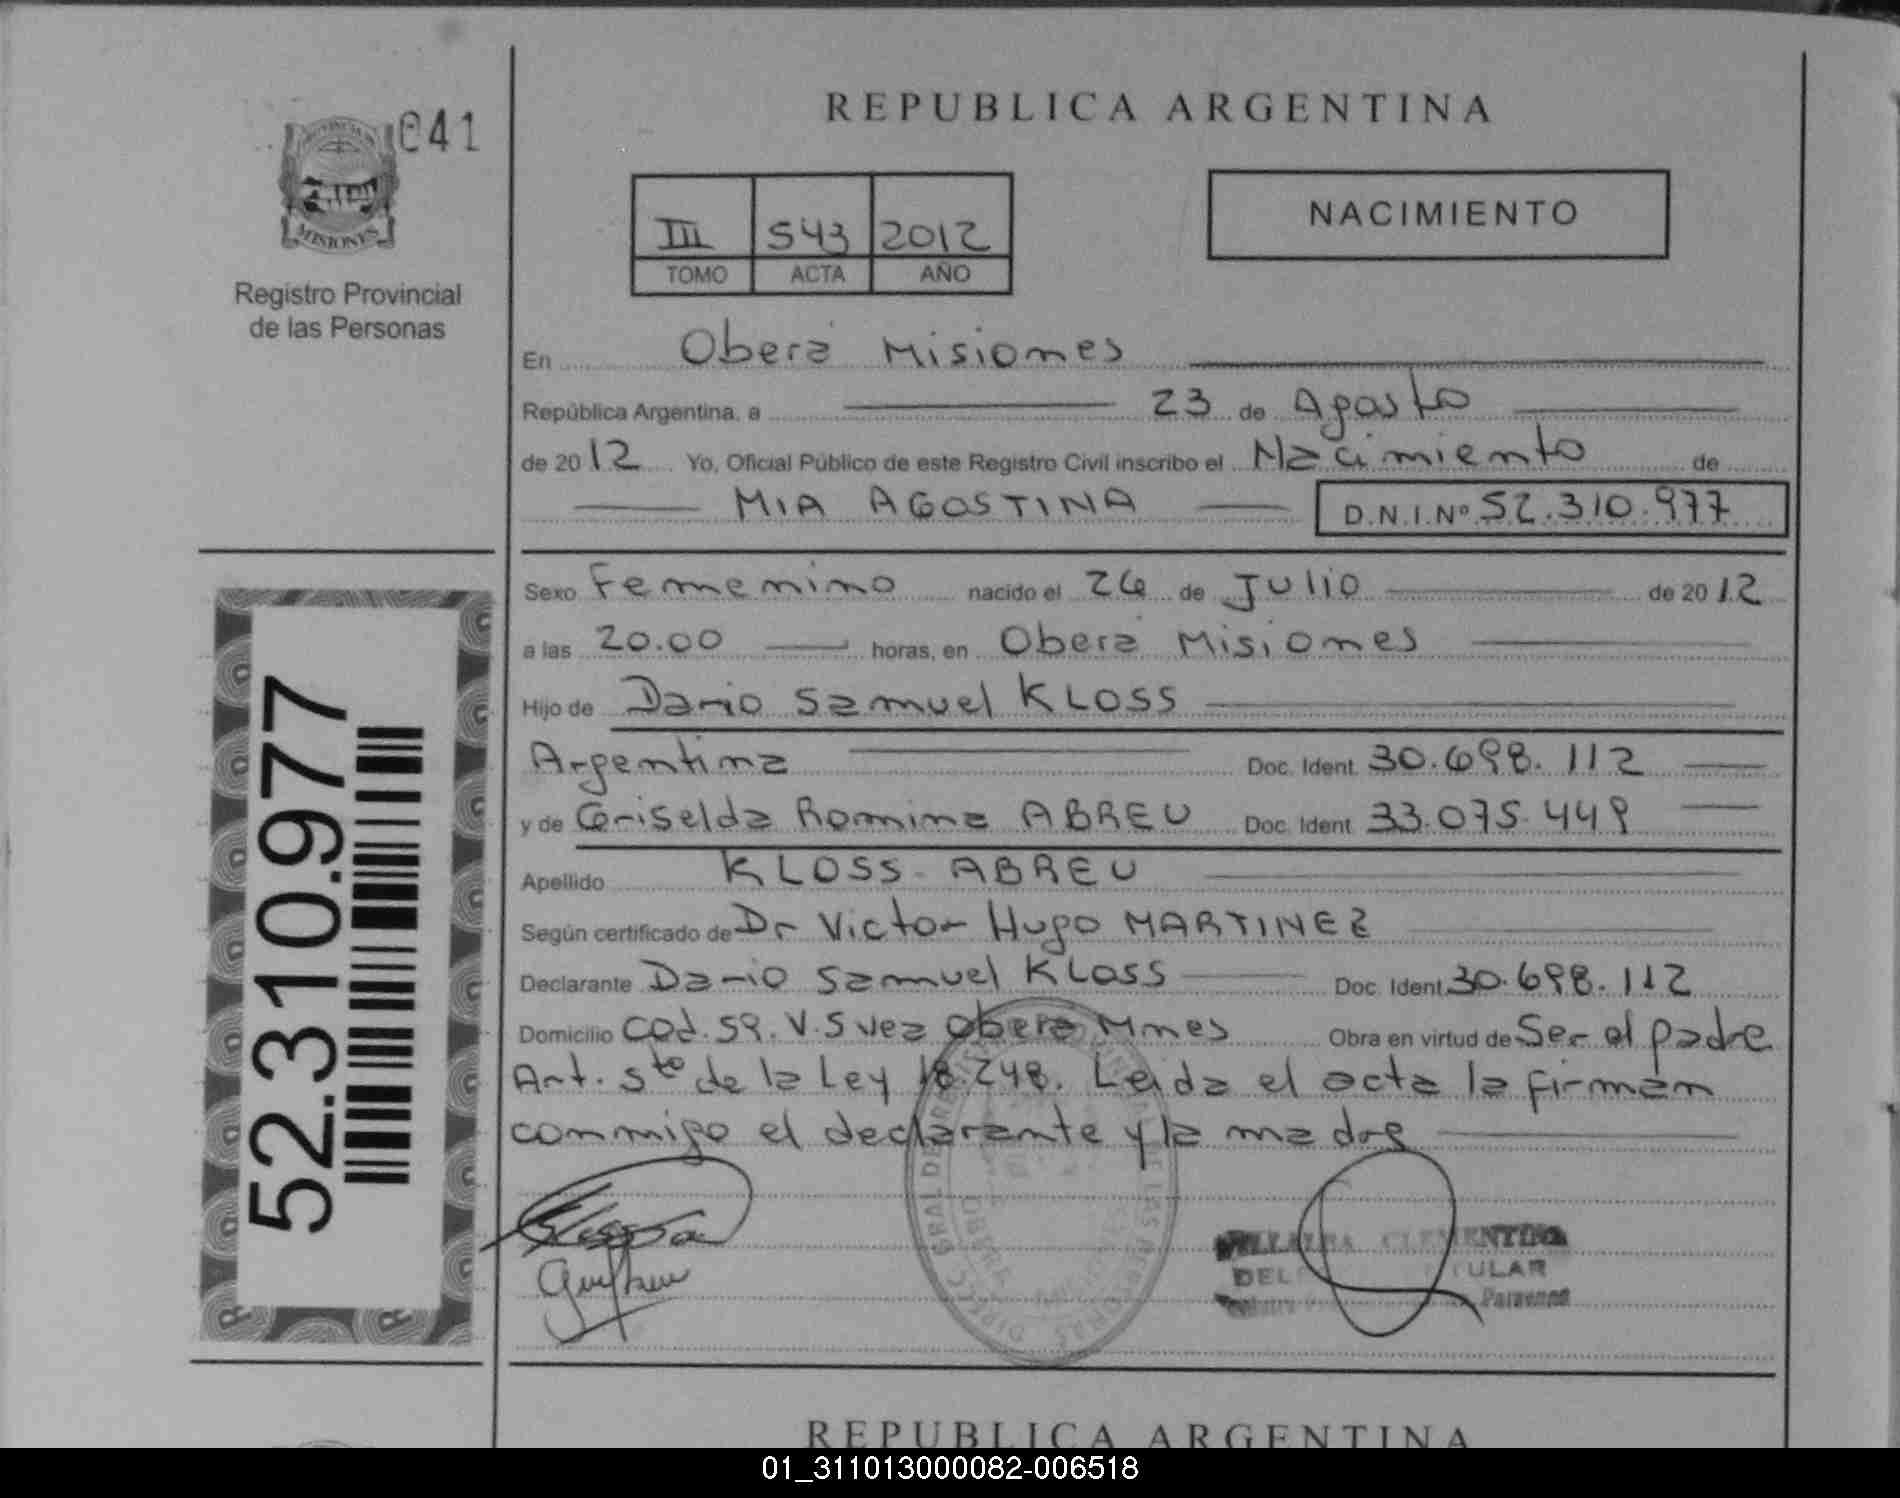 REPUBLICA ARGENTINA
041
MISIONES
Registro Provincial
de las Personas
NACIMIENTO
III 543 2012
TOMO ACTA AÑO
En Oberá Misiones
República Argentina, a 23 de Agosto
de 2012 Yo, Oficial Público de este Registro Civil inscribo el Nacimiento de
MIA AGOSTINA D.N.I.Nº 52.310.977
Sexo Femenino nacido el 26 de Julio de 2012
a las 20.00 horas, en Oberá Misiones
Hijo de Dario Samuel KLOSS
Argentina Doc. Ident. 30.698.112
y de Griselda Romina ABREU Doc. Ident. 33.075.449
Apellido KLOSS ABREU
Según certificado de Dr Victor Hugo MARTINEZ
Declarante Dario Samuel KLOSS Doc. Ident. 30.698.112
Domicilio Cod. 59. V. Svea Oberá Mnes Obra en virtud de Ser el padre
Art. 5to de la Ley 18.248. Leida el acta la firman
conmigo el declarante y la madre
CLEMENTINA
TULAR
Personas
52.310.977
REPUBLICA ARGENTINA
01_311013000082-006518